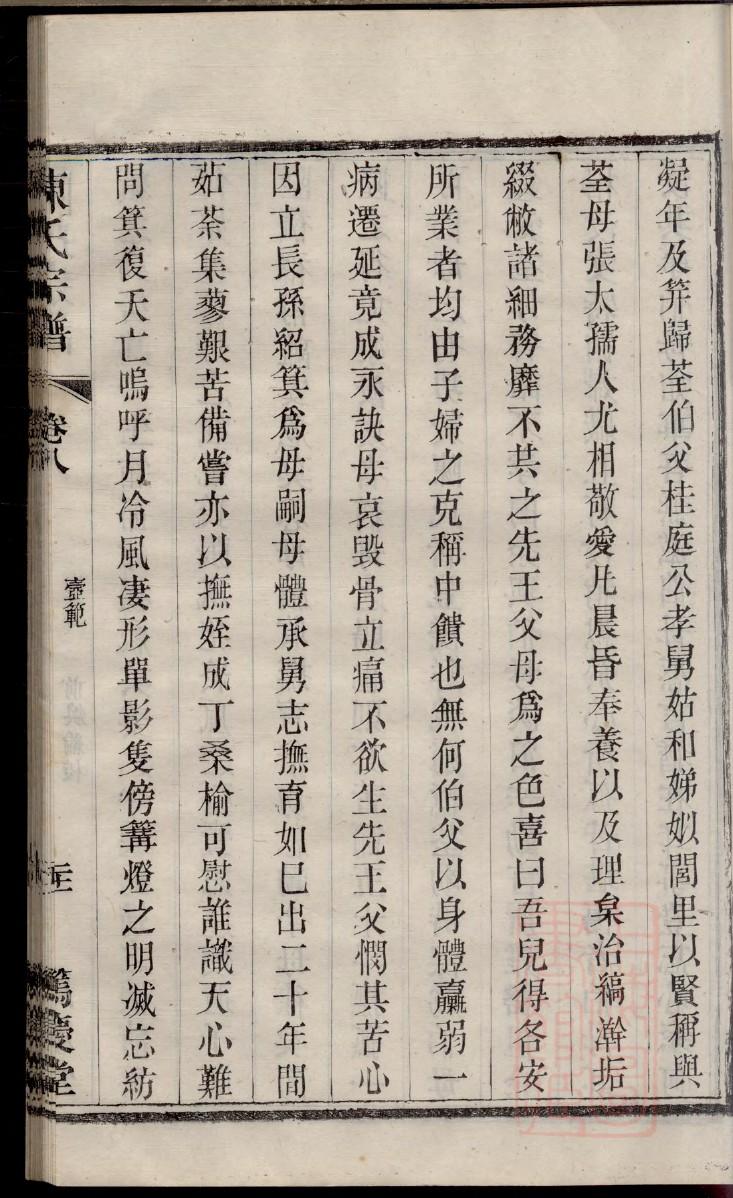 凝年及笄歸荃伯父桂庭公孝舅姑和娣姒閭里以賢稱與
荃母張太孺人尤相敬愛凡晨昏奉養以及理枲治縞澣垢
綴敝諸細務靡不共之先王父母爲之色喜曰吾兒得各安
所業者均由子婦之克稱中饋也無何伯父以身體羸弱一
病遷延竟成永訣母哀毀骨立痛不欲生先王父憫其苦心
因立長孫紹箕爲母嗣母體承舅志撫育如已出二十年間
茹荼集蓼艱苦備嘗亦以撫姪成丁桑榆可慰誰識天心難
問箕復夭亡嗚呼月冷風淒形單影隻傍篝燈之明滅忘紡
陳氏宗譜 卷八
壼範
篤慶堂